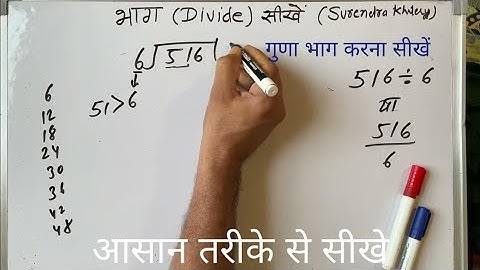 भाग (Divide) सीखें (Surendra Khilery)
6)516(
गुणा भाग करना सीखें
51>6
516÷6
या
516/6
6
12
18
24
30
36
42
48
आसान तरीके से सीखे